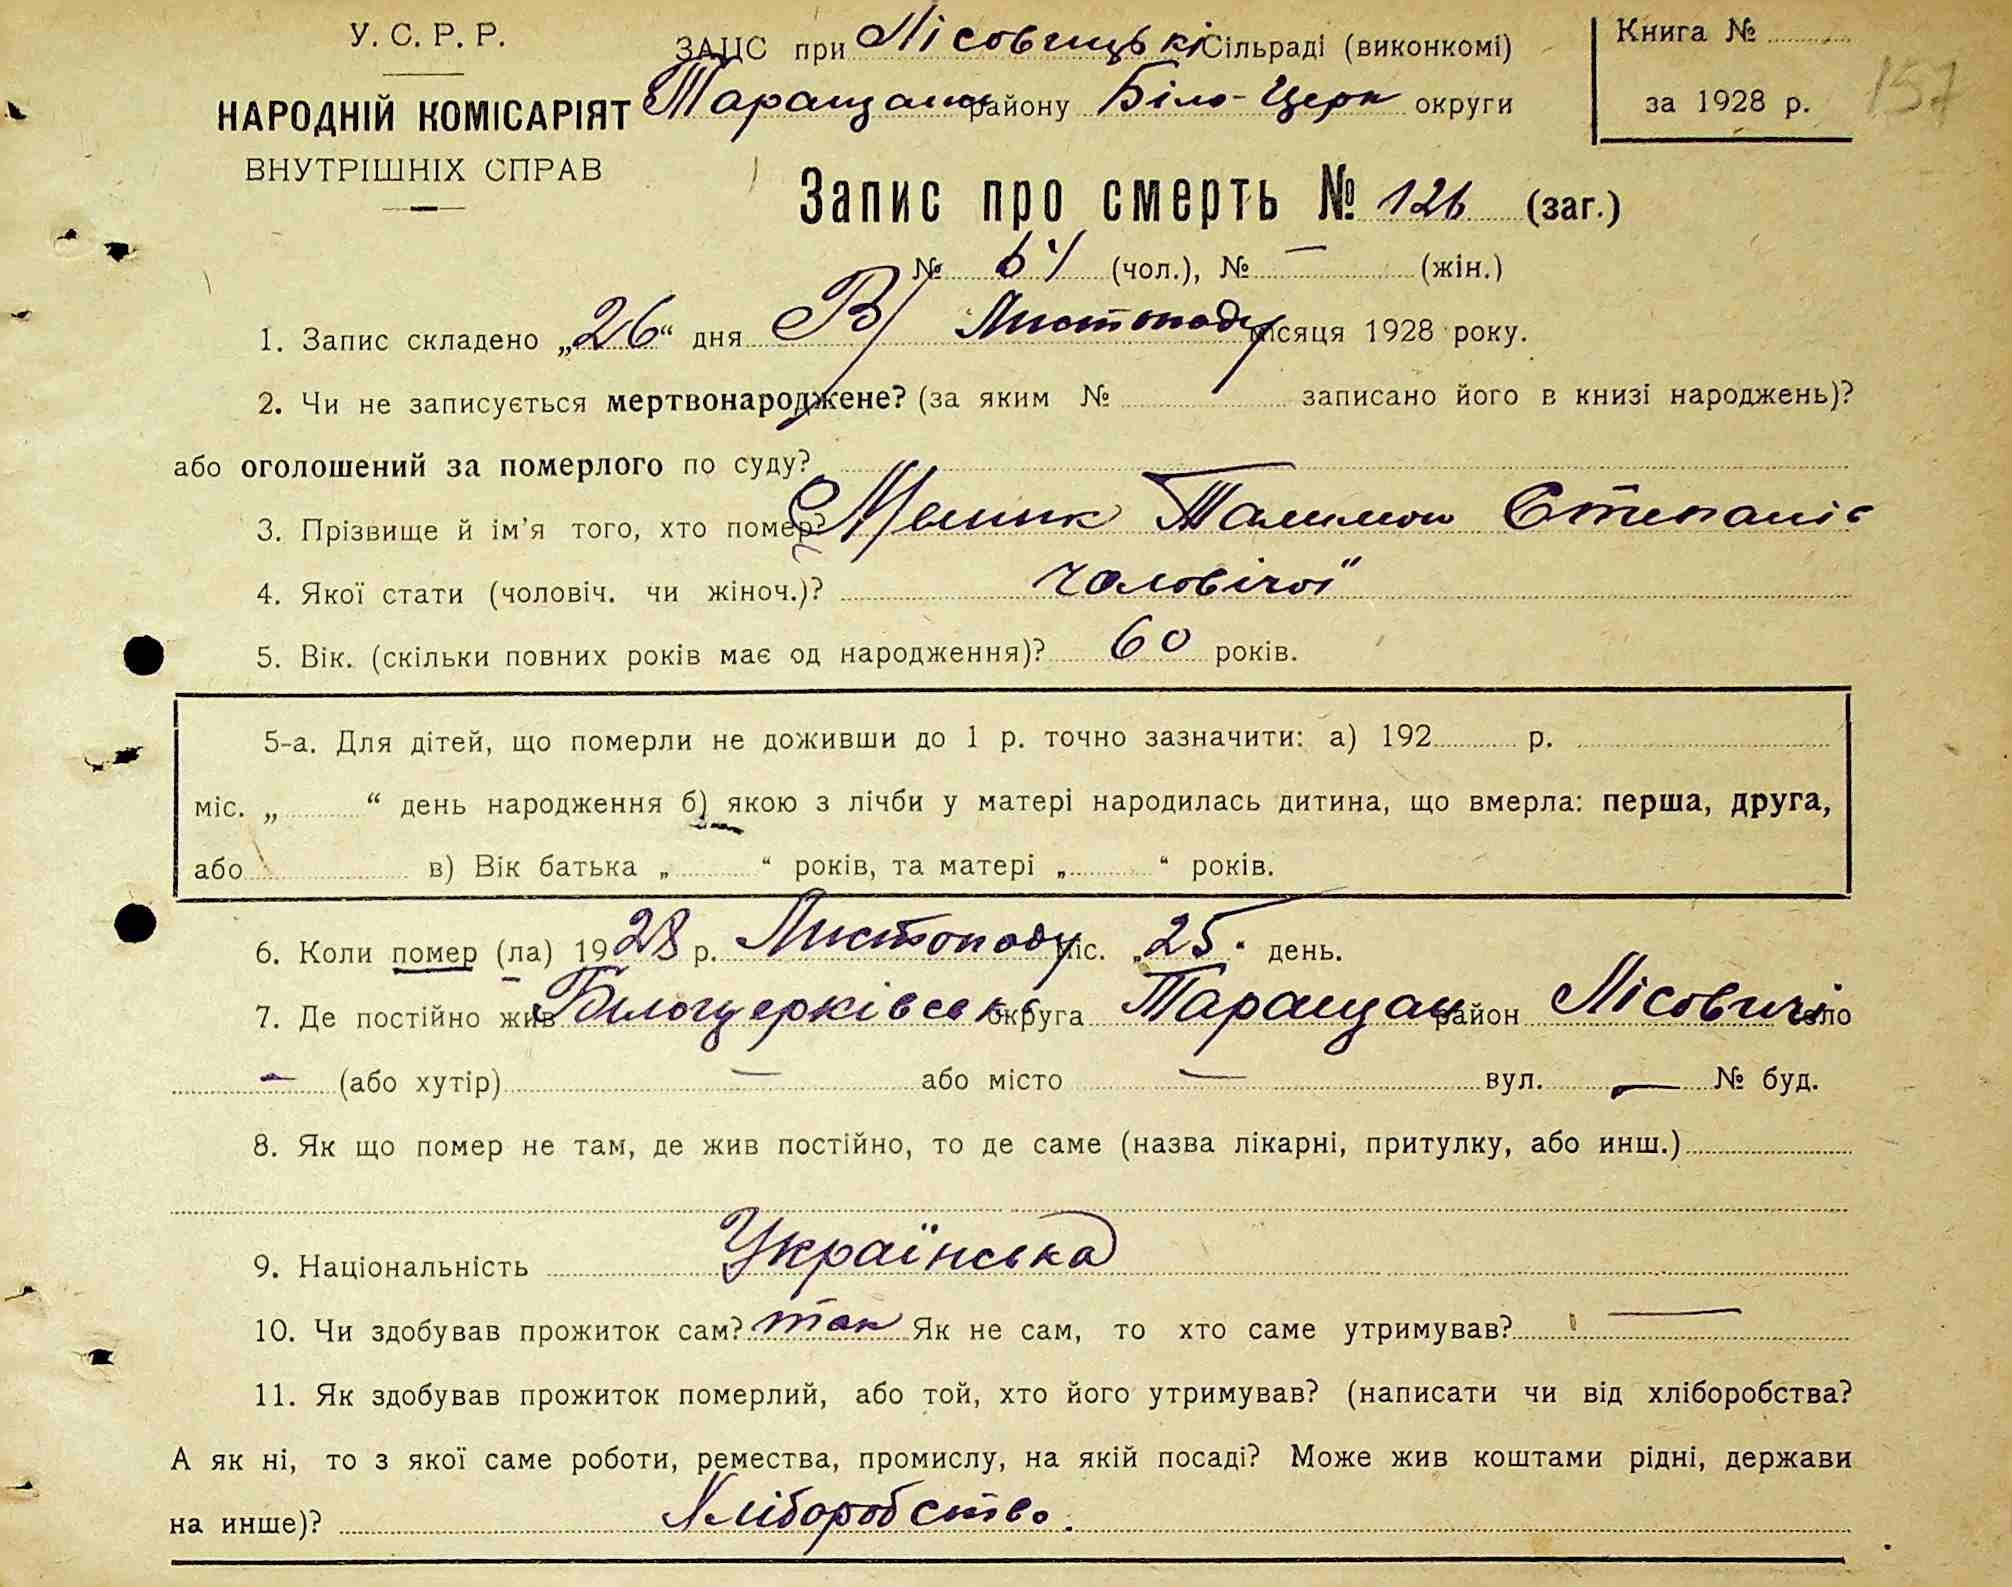 У. С. Р. Р.
НАРОДНІЙ КОМІСАРІЯТ
ВНУТРІШНІХ СПРАВ
ЗАЦС при Лісовицькі Сільраді (виконкомі)
Таращан району Біло-Церк округи
Книга №
за 1928 р.
157
Запис про смерть № 126 (заг.)
№ 61 (чол.), № — (жін.)
1. Запис складено „26“ дня Листопаду місяця 1928 року.
2. Чи не записується мертвонароджене? (за яким № записано його в книзі народжень)?
або оголошений за померлого по суду?
3. Прізвище й ім'я того, хто помер? Талимон Степанів
4. Якої стати (чоловіч. чи жіноч.)? чоловічої
5. Вік. (скільки повних років має од народження)? 60 років.
5-а. Для дітей, що померли не доживши до 1 р. точно зазначити: а) 192 р.
міс. „ “ день народження б) якою з лічби у матері народилась дитина, що вмерла: перша, друга,
або в) Вік батька „ “ років, та матері „ “ років.
6. Коли помер (ла) 1928 р. Листопаду міс. „25“ день.
7. Де постійно жив Білоцерківськ округа Таращан район Лісовичі село
— (або хутір) — або місто — вул. — № буд.
8. Як що помер не там, де жив постійно, то де саме (назва лікарні, притулку, або инш.)
9. Національність Українська
10. Чи здобував прожиток сам? так Як не сам, то хто саме утримував? —
11. Як здобував прожиток померлий, або той, хто його утримував? (написати чи від хліборобства?
А як ні, то з якої саме роботи, ремества, промислу, на якій посаді? Може жив коштами рідні, держави
на инше)? Хліборобство.